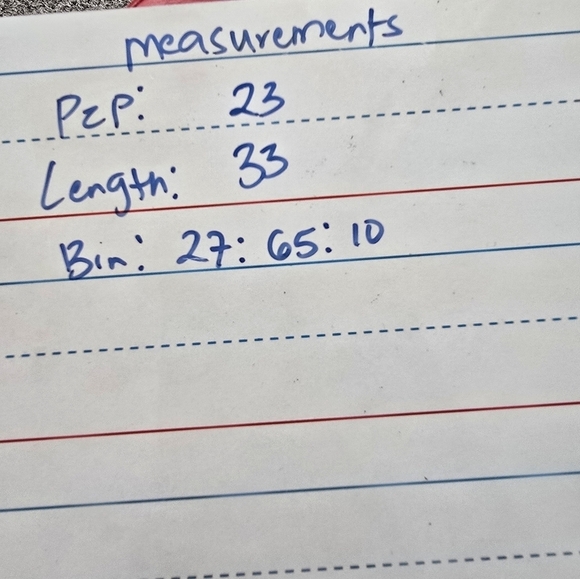 measurements
P2P: 23
Length: 33
Bin: 27: 65: 10